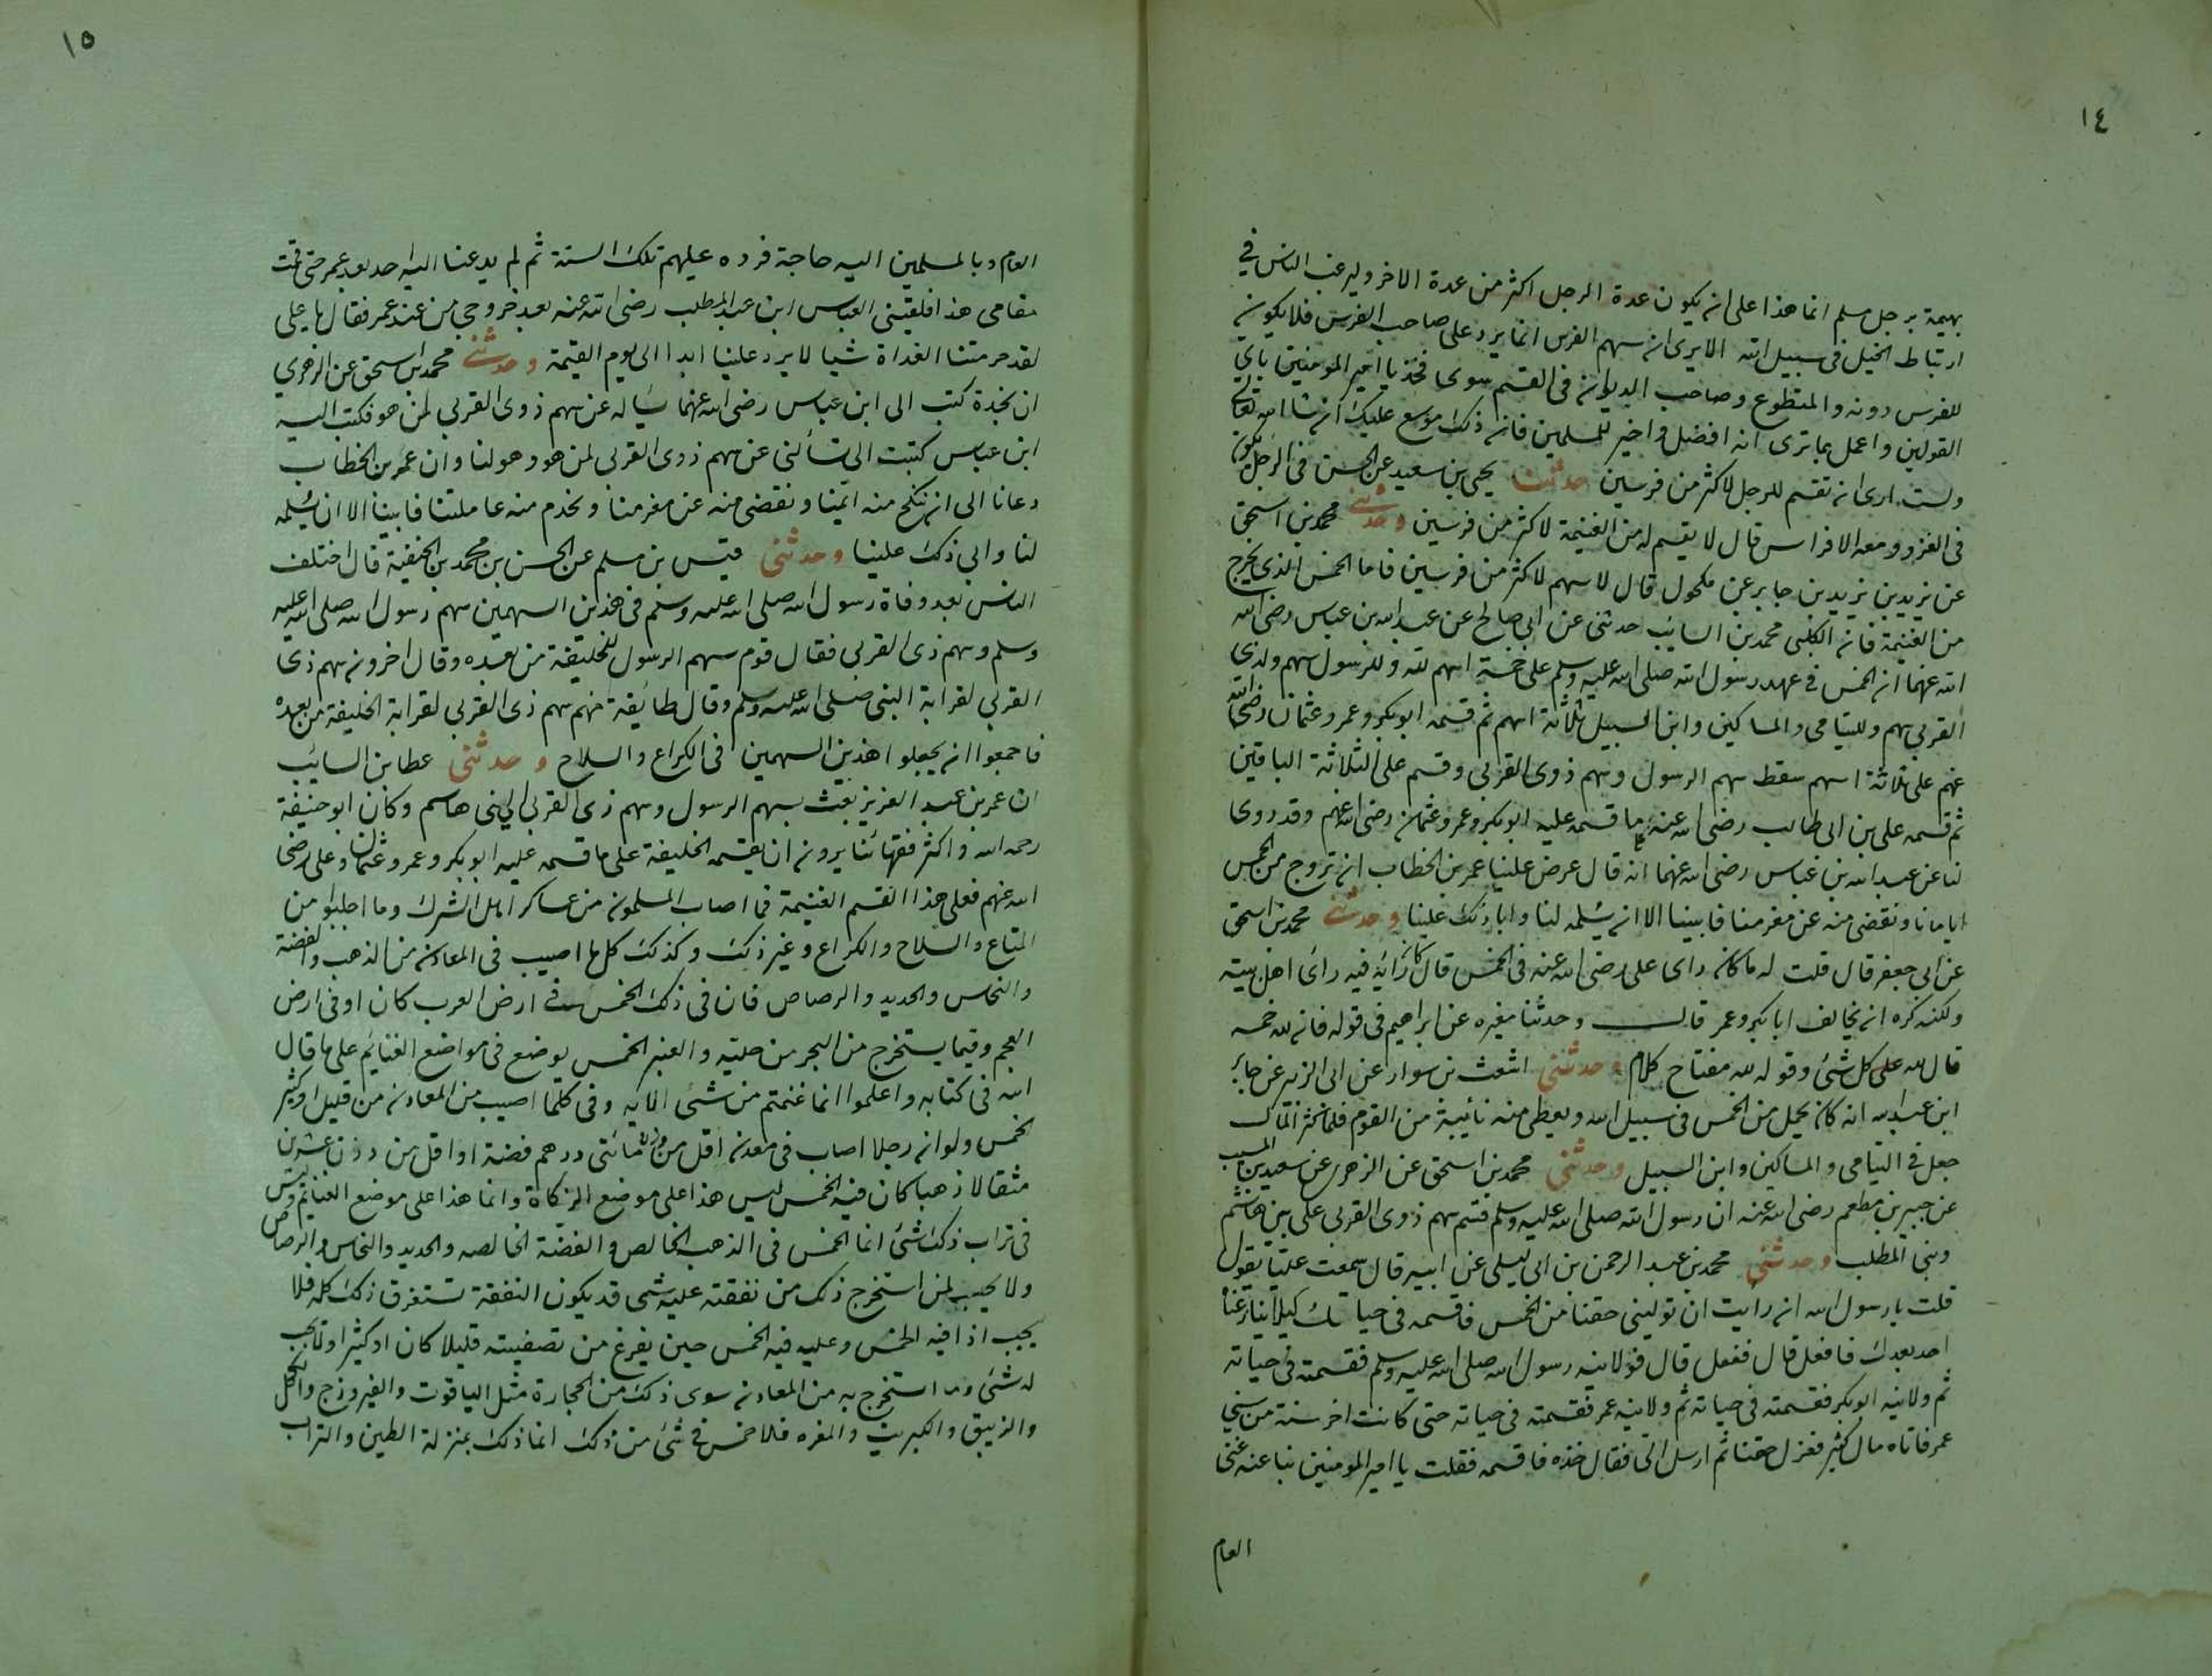 ١٤
بهيمة برجل مسلم انما هذا على ان يكون عدة الرجل اكثر من عدة الاخر وليرغب الناس في
ارتباط الخيل فى سبيل الله الا يرى ان سهم الفرس انما يرد على صاحب الفرس فلا يكون
للفرس دونه والمتطوع وصاحب الديوان فى القسم سوى فخذ يا امير المومنين باى
القولين واعمل بما ترى انه افضل واخير للمسلمين فان ذلك موسع عليك ان شا الله تعالى
ولست ارى ان تقسم للرجل لاكثر من فرسين حدثنا يحيى بن سعيد عن الحسن فى الرجل يكون
فى الغزو ومعه الافراس قال لا يقسم له من الغنيمة لاكثر من فرسين وحدثنى محمد بن اسحق
عن يزيد بن يزيد بن جابر عن مكحول قال لا سهم لاكثر من فرسين فاما الخمس الذى يخرج
من الغنيمة فان الكلبى محمد بن السائب حدثنى عن ابى صالح عن عبد الله بن عباس رضى الله
الله عنهما ان الخمس فى عهد رسول الله صلى الله عليه وسلم على خمسة اسهم لله وللرسول سهم ولذى
القربى سهم ولليتامى والمساكين وابن السبيل ثلاثة اسهم ثم قسمه ابو بكر وعمر وعثمان رضى الله
عنهم على ثلاثة اسهم سقط سهم الرسول وسهم ذوى القربى وقسم على الثلاثة الباقين
ثم قسمه على بن ابى طالب رضى الله عنه ما قسمه عليه ابو بكر وعمر وعثمان رضى الله عنهم وقد روى
لنا عن عبد الله بن عباس رضى الله عنهما انه قال عرض علينا عمر بن الخطاب ان تزوج من الخمس
ايامانا ونقضى منه عن مغرمنا فابينا الا ان يسلمه لنا وابا ذلك علينا وحدثنى محمد بن اسحق
عن ابى جعفر قال قلت له ما كان راى على رضى الله عنه فى الخمس قال كان رايه فيه راى اهل بيته
ولكنه كره ان يخالف ابا بكر وعمر قال وحدثنا مغيره عن ابراهيم فى قوله فان لله خمسه
قال لله على كل شئ وقوله لله مفتاح كلام وحدثنى اشعث بن سوار عن ابى الزبير عن جابر
ابن عبد الله انه كان يحمل من الخمس فى سبيل الله ويعطى منه نائبة من القوم فلما كثر المال
جعل فى اليتامى والمساكين وابن السبيل وحدثنى محمد بن اسحق عن الزهرى عن سعيد بن المسيب
عن جبير بن مطعم رضى الله عنه ان رسول الله صلى الله عليه وسلم قسم سهم ذوى القربى على بنى هاشم
وبنى المطلب وحدثنى محمد بن عبد الرحمن بن ابى ليلى عن ابيه قال سمعت عليا يقول
قلت يا رسول الله ان رايت ان تولينى حقنا من الخمس فاقسمه فى حياتك كيلا ينازعنا
احد بعدك فافعل قال ففعل قال فولانيه رسول الله صلى الله عليه وسلم فقسمته فى حياته
ثم ولانيه ابو بكر فقسمته فى حياته ثم ولانيه عمر فقسمته فى حياته حتى كانت اخر سنة من سنى
عمر فاتاه مال كثير فعزل حقنا ثم ارسل الى فقال خذه فاقسمه فقلت يا امير المومنين بنا عنه غنى
العام
١٥
العام وبالمسلمين اليه حاجة فرده عليهم تلك السنة ثم لم يدعنا اليه احد بعد عمر حتى قمت
مقامى هذا فلقينى العباس ابن عبد المطلب رضى الله عنه بعد خروجى من عند عمر فقال يا على
لقد حرمتنا الغداة شيا لا يرد علينا ابدا الى يوم القيمة وحدثنى محمد بن اسحق عن الزهرى
ان نجدة كتب الى ابن عباس رضى الله عنهما يساله عن سهم ذوى القربى لمن هو فكتب اليه
ابن عباس كتبت الى تسألنى عن سهم ذوى القربى لمن هو وهو لنا وان عمر بن الخطاب
دعانا الى ان ننكح منه ايمنا ونقضى منه عن مغرمنا ونخدم منه عاملتنا فابينا الا ان يسلمه
لنا وابى ذلك علينا وحدثنى قيس بن مسلم عن الحسن بن محمد بن الحنفية قال اختلف
الناس بعد وفاة رسول الله صلى الله عليه وسلم فى هذين السهمين سهم رسول الله صلى الله عليه
وسلم وسهم ذى القربى فقال قوم سهم الرسول للخليفة من بعده وقال اخرون سهم ذى
القربى لقرابة النبى صلى الله عليه وسلم وقال طائفة منهم سهم ذى القربى لقرابة الخليفة من بعده
فاجمعوا ان يجعلوا هذين السهمين فى الكراع والسلاح وحدثنى عطا بن السائب
ان عمر بن عبد العزيز بعث بسهم الرسول وسهم ذى القربى الى بنى هاشم وكان ابو حنيفة
رحمه الله واكثر فقهائنا يرون ان يقسمه الخليفة على ما قسمه عليه ابو بكر وعمر وعثمان وعلى رضى
الله عنهم فعلى هذا القسم الغنيمة فما اصاب المسلمون من عساكر اهل الشرك وما اجلبوا من
المتاع والسلاح والكراع وغير ذلك وكذلك كل ما اصيب فى المعادن من الذهب والفضة
والنحاس والحديد والرصاص فان فى ذلك الخمس فى ارض العرب كان او فى ارض
العجم وفيما يستخرج من البحر من حلية والعنبر الخمس يوضع فى مواضع الغنائم على ما قال
الله فى كتابه واعلموا انما غنمتم من شئ الايه وفى كلما اصيب من المعادن من قليل او كثير
الخمس ولو ان رجلا اصاب فى معدن اقل من وزن مائتى درهم فضة او اقل من وزن عشرين
مثقالا ذهبا كان فيه الخمس ليس هذا على موضع الزكاة وانما هذا على موضع الغنائم وليس
فى تراب ذلك شئ انما الخمس فى الذهب الخالص والفضة الخالصه والحديد والنحاس والرصاص
ولا يحسب لمن استخرج ذلك من نفقته عليه شى قد يكون النفقة تستغرق ذلك كله فلا
يجب اذا فيه الخمس وعليه فيه الخمس حين يفرغ من تصفيته قليلا كان او كثيرا ولا يحسب
له شئ وما استخرج به من المعادن سوى ذلك من الحجارة مثل الياقوت والفيروزج والكحل
والزيبق والكبريت والمغره فلا خمس فى شئ من ذلك انما ذلك بمنزلة الطين والتراب